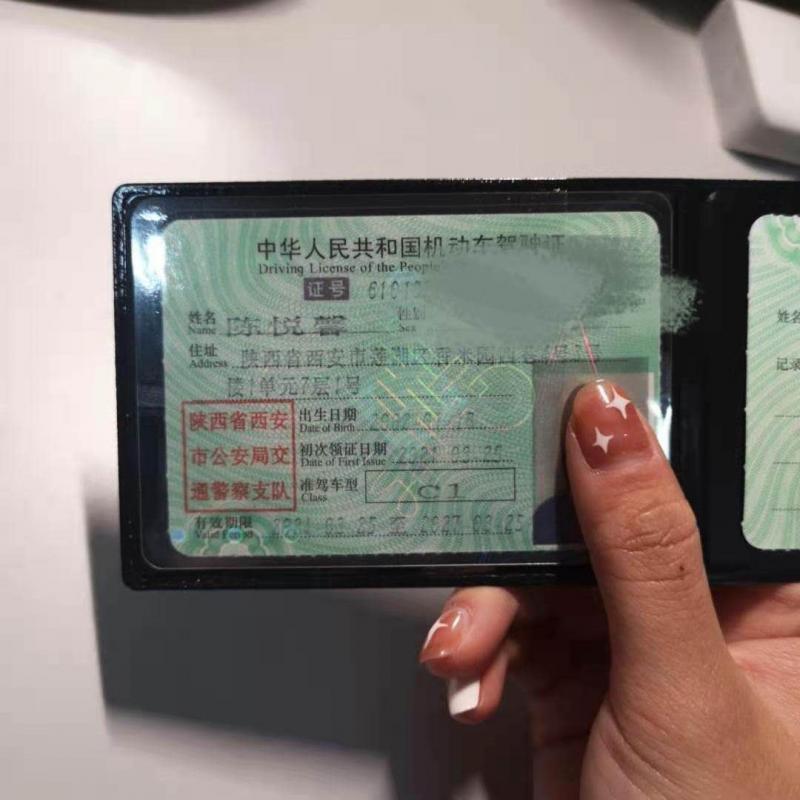 中华人民共和国机动车驾驶证
Driving License of the People
证号 6101
姓名 陈悦馨 性别
Name Sex
住址 陕西省西安市莲湖区香米园西巷
Address
楼1单元7层1号
陕西省西安
市公安局交
通警察支队
出生日期
Date of Birth
初次领证日期 2021-03-25
Date of First Issue
准驾车型 C1
Class
有效期限 2021-03-25 至 2027-03-25
Valid Period
姓名
记录